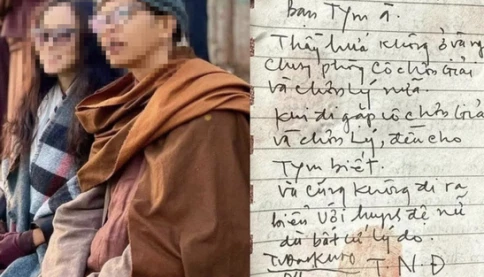 Bạn Tym à.
Thầy hứa không ở vãng
chung phòng cô chơn Giải
và chơn Lý nữa.
Khi đi gặp cô chơn Giải
và chơn Lý, đều cho
Tym biết.
và cũng không đi ra
biển với huynh đệ nữ
dù bất cứ lý do.
T N Đ